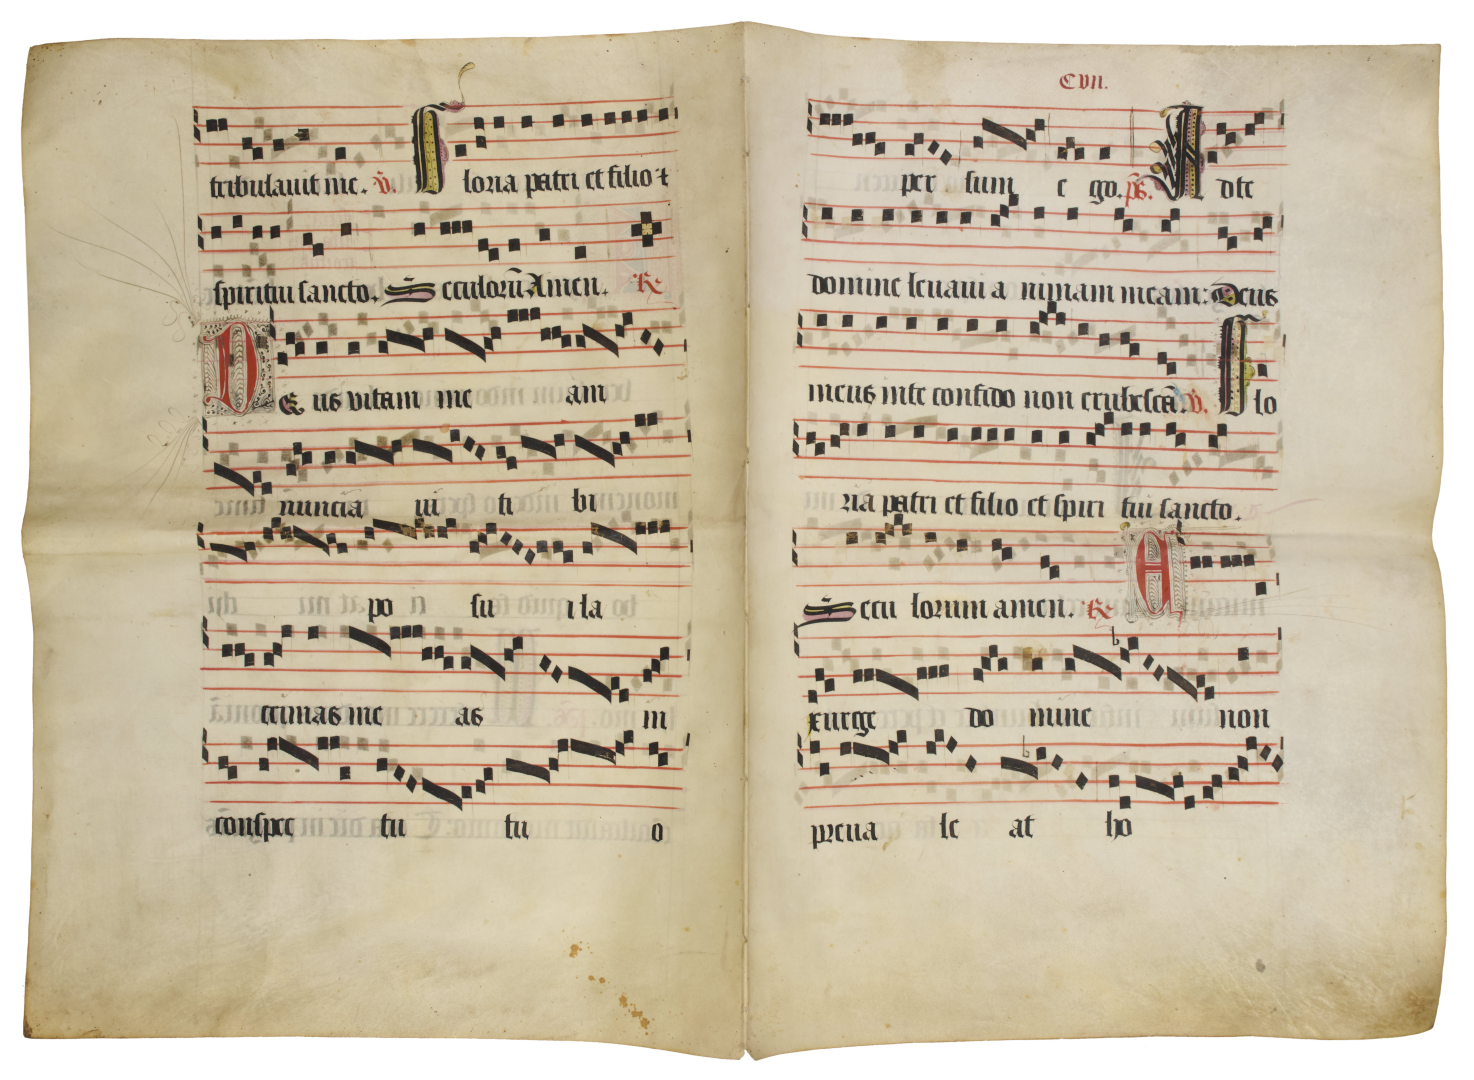 tribulauit me. V. Gloria patri et filio &
spiritui sancto. Seculorũ Amen. R
DEus vitam me am
nuncia ui ti bi
po su i la
crimas me as in
conspec tu tu o
CVII.
per sum e go. ps. Ad te
domine leuaui a nimam meam: Deus
meus in te confido non erubescã. V. Glo
ria patri et filio et spiri tui sancto.
Secu lorum amen. R E
xurge do mine non
preua le at ho